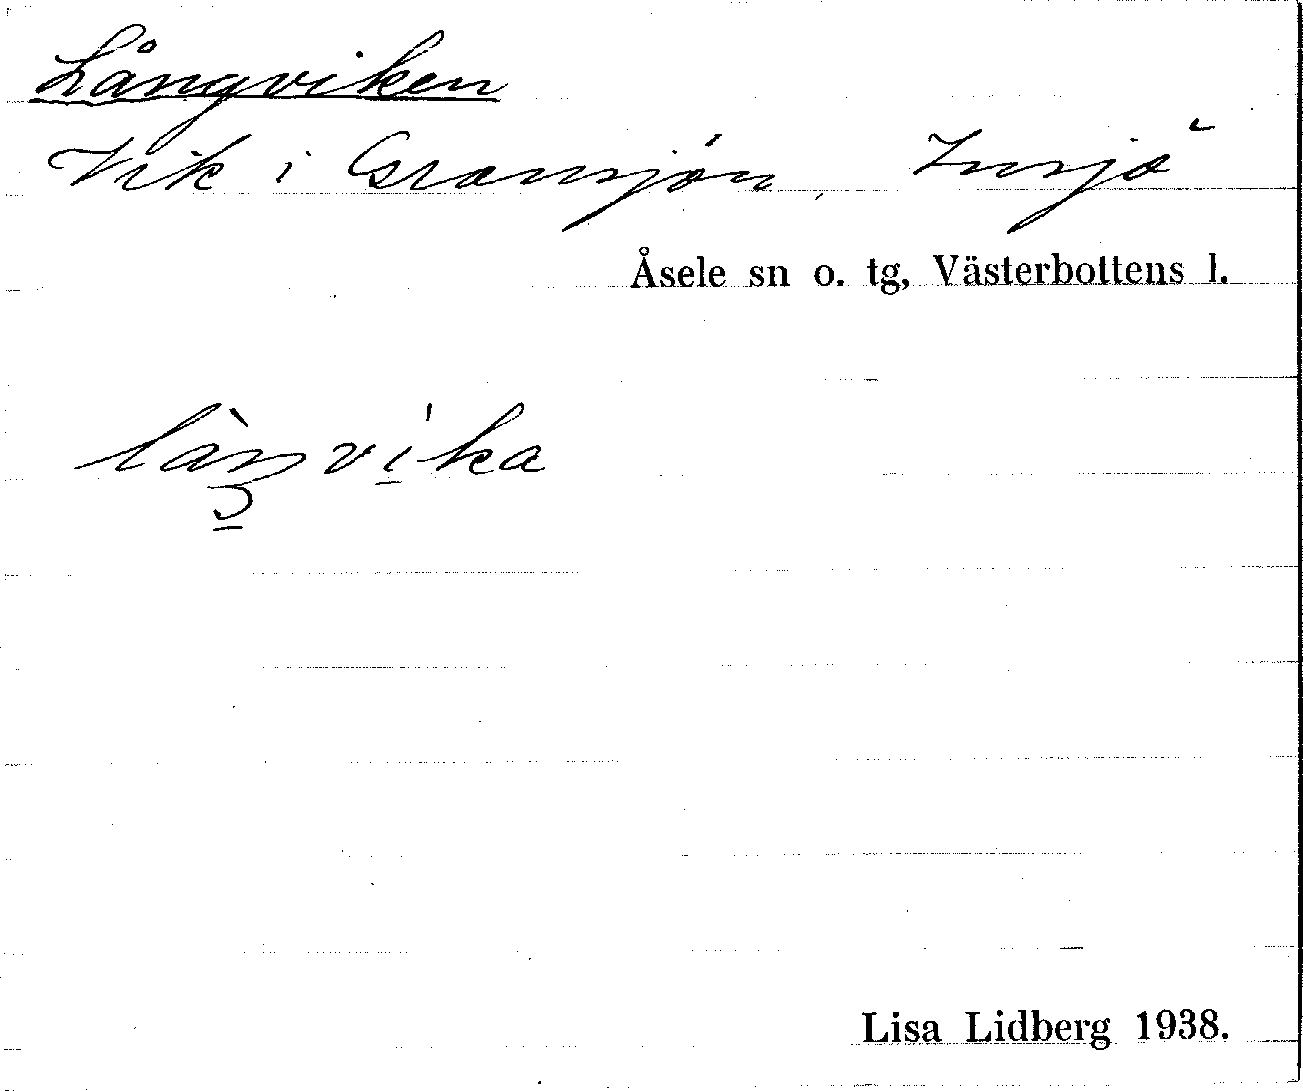 Långviken
Vik i Gransjön, Insjö
Åsele sn o. tg, Västerbottens l.
Lisa Lidberg 1938.